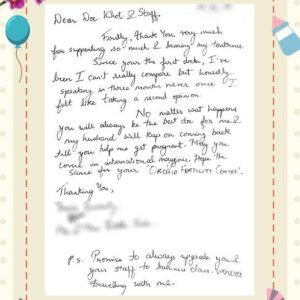 Dear Doc Khot & Staff,
Firstly, thank you very much
for supporting so much & bearing my tantrums.
Since your the first doctor, I've
been I can't really compare but honestly
speaking in three months never once I
felt like taking a second opinion.
No matter what happens
you will always be the best doc for me &
my husband will keep on coming back
till you help me get pregnant. May you
come in international magazines. Hope the
same for your 'CIRCHIO FERTILITY CENTRE'.
Thanking You,
P.S. Promise to always upgrade you &
your staff to business class
travelling with me.